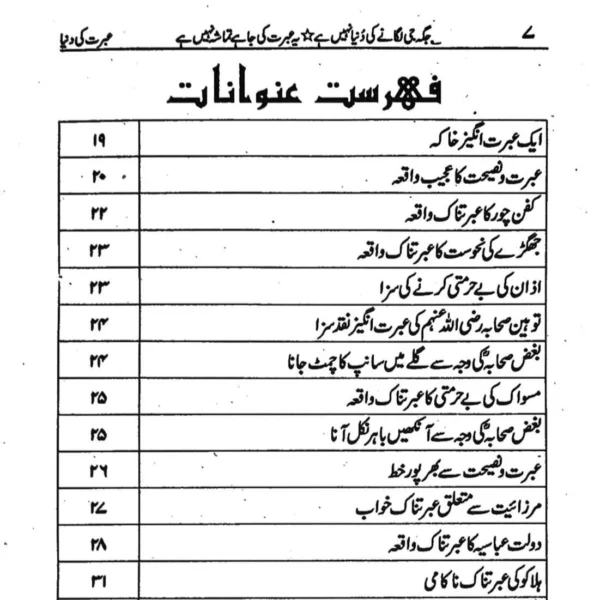 ۷ جگہ جی لگانے کی دُنیا نہیں ہے ☆ یہ عبرت کی جا ہے تماشہ نہیں ہے عبرت کی دنیا
فہرست عنوانات
ایک عبرت انگیز خاکہ ۱۹
عبرت و نصیحت کا عجیب واقعہ ۲۰
کفن چور کا عبرتناک واقعہ ۲۲
جھگڑے کی نحوست کا عبرتناک واقعہ ۲۳
اذان کی بے حرمتی کرنے کی سزا ۲۳
توہین صحابہ رضی اللہ عنہم کی عبرت انگیز نقد سزا ۲۴
بغض صحابہؓ کی وجہ سے گلے میں سانپ کا چمٹ جانا ۲۴
مسواک کی بے حرمتی کا عبرتناک واقعہ ۲۵
بغض صحابہؓ کی وجہ سے آنکھیں باہر نکل آنا ۲۵
عبرت و نصیحت سے بھرپور خط ۲۶
مرزائیت سے متعلق عبرتناک خواب ۲۷
دولت عباسیہ کا عبرتناک واقعہ ۲۸
ہلاکو کی عبرتناک ناکامی ۳۱